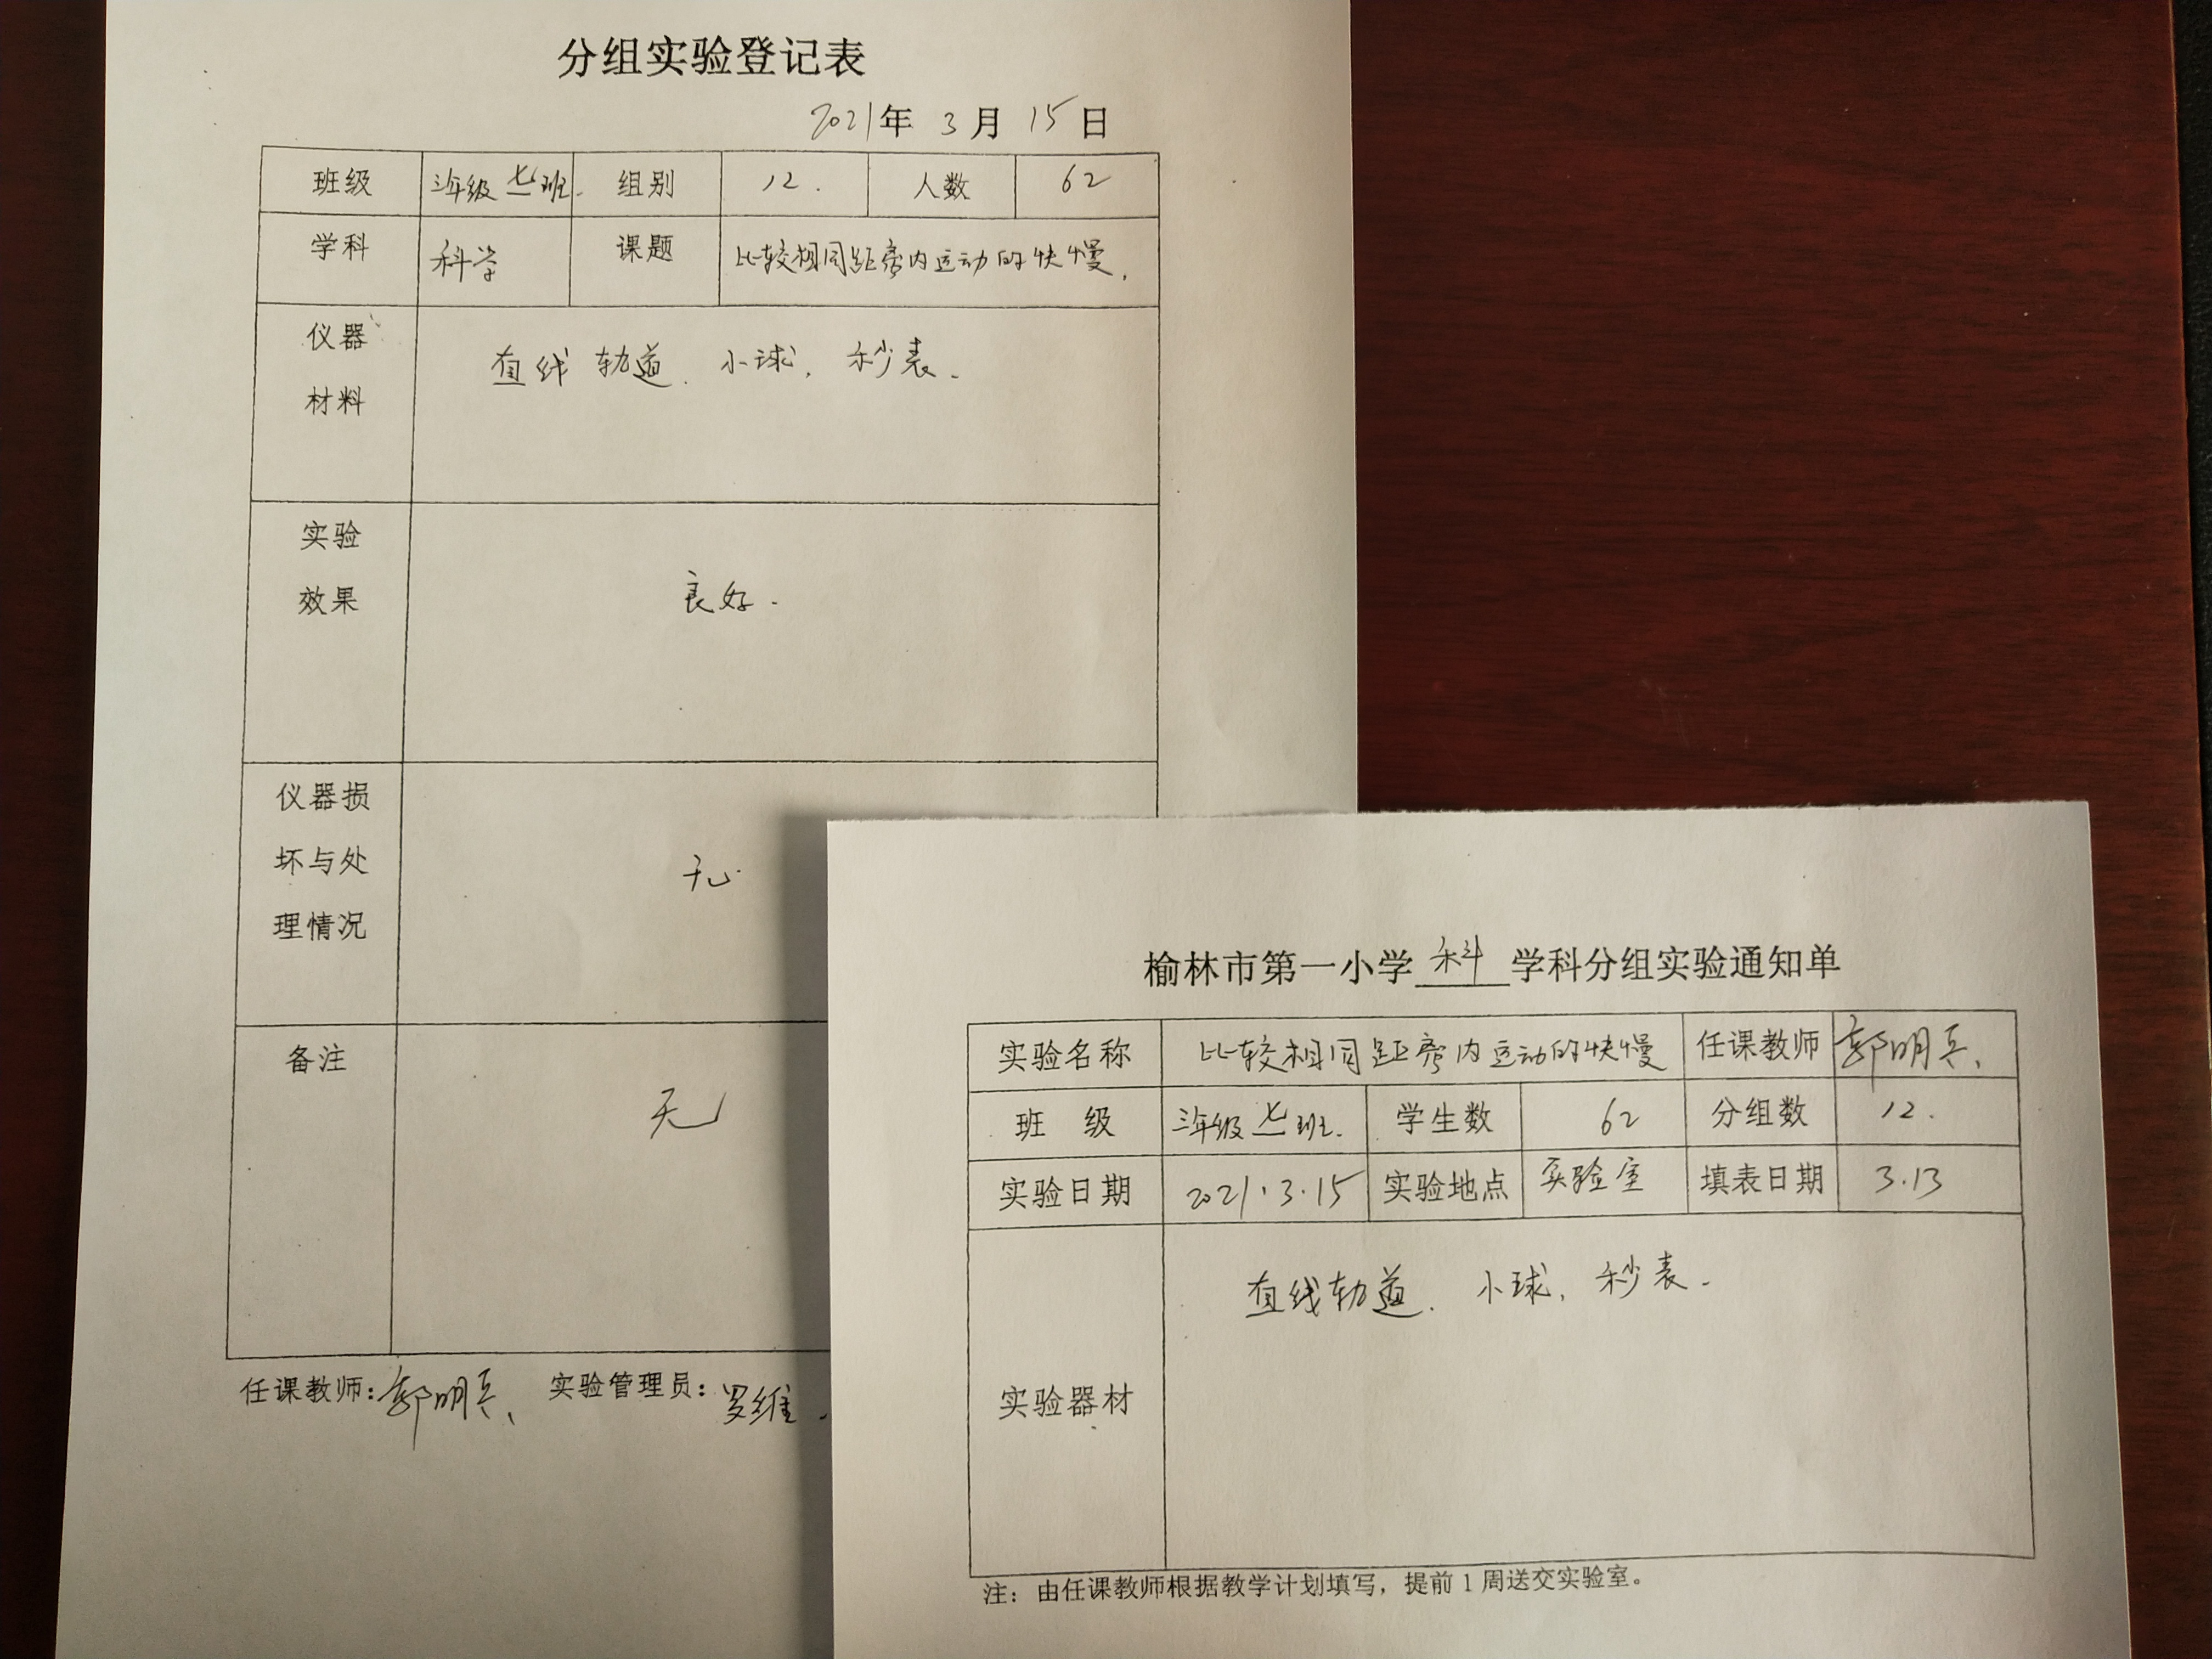 分组实验登记表
2021年 3月 15日
班级 三年级七班. 组别 12. 人数 62
学科 科学 课题 比较相同距离内运动的快慢.
仪器
材料
直线轨道. 小球, 秒表.
实验
效果
良好.
仪器损
坏与处
理情况
无.
备注
无
任课教师:郭明兵、 实验管理员:罗维.
榆林市第一小学 科 学科分组实验通知单
实验名称 比较相同距离内运动的快慢 任课教师 郭明兵、
班 级 三年级七班. 学生数 62 分组数 12.
实验日期 2021.3.15 实验地点 实验室 填表日期 3.13
实验器材
直线轨道. 小球, 秒表.
注：由任课教师根据教学计划填写，提前1周送交实验室。